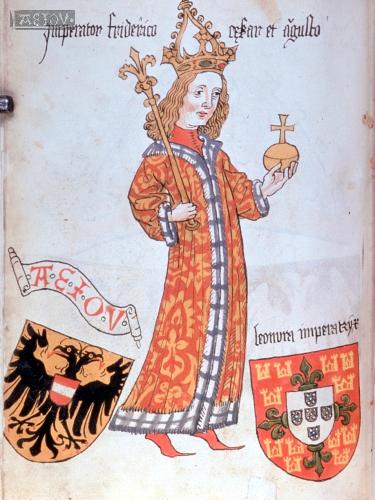 AEIOV
Imperator fridericо cesar et augusto
A·E·I·O·V·
leonora imperatrix